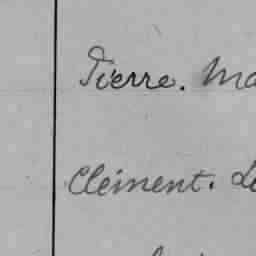 Pierre. Ma
Clément. Le